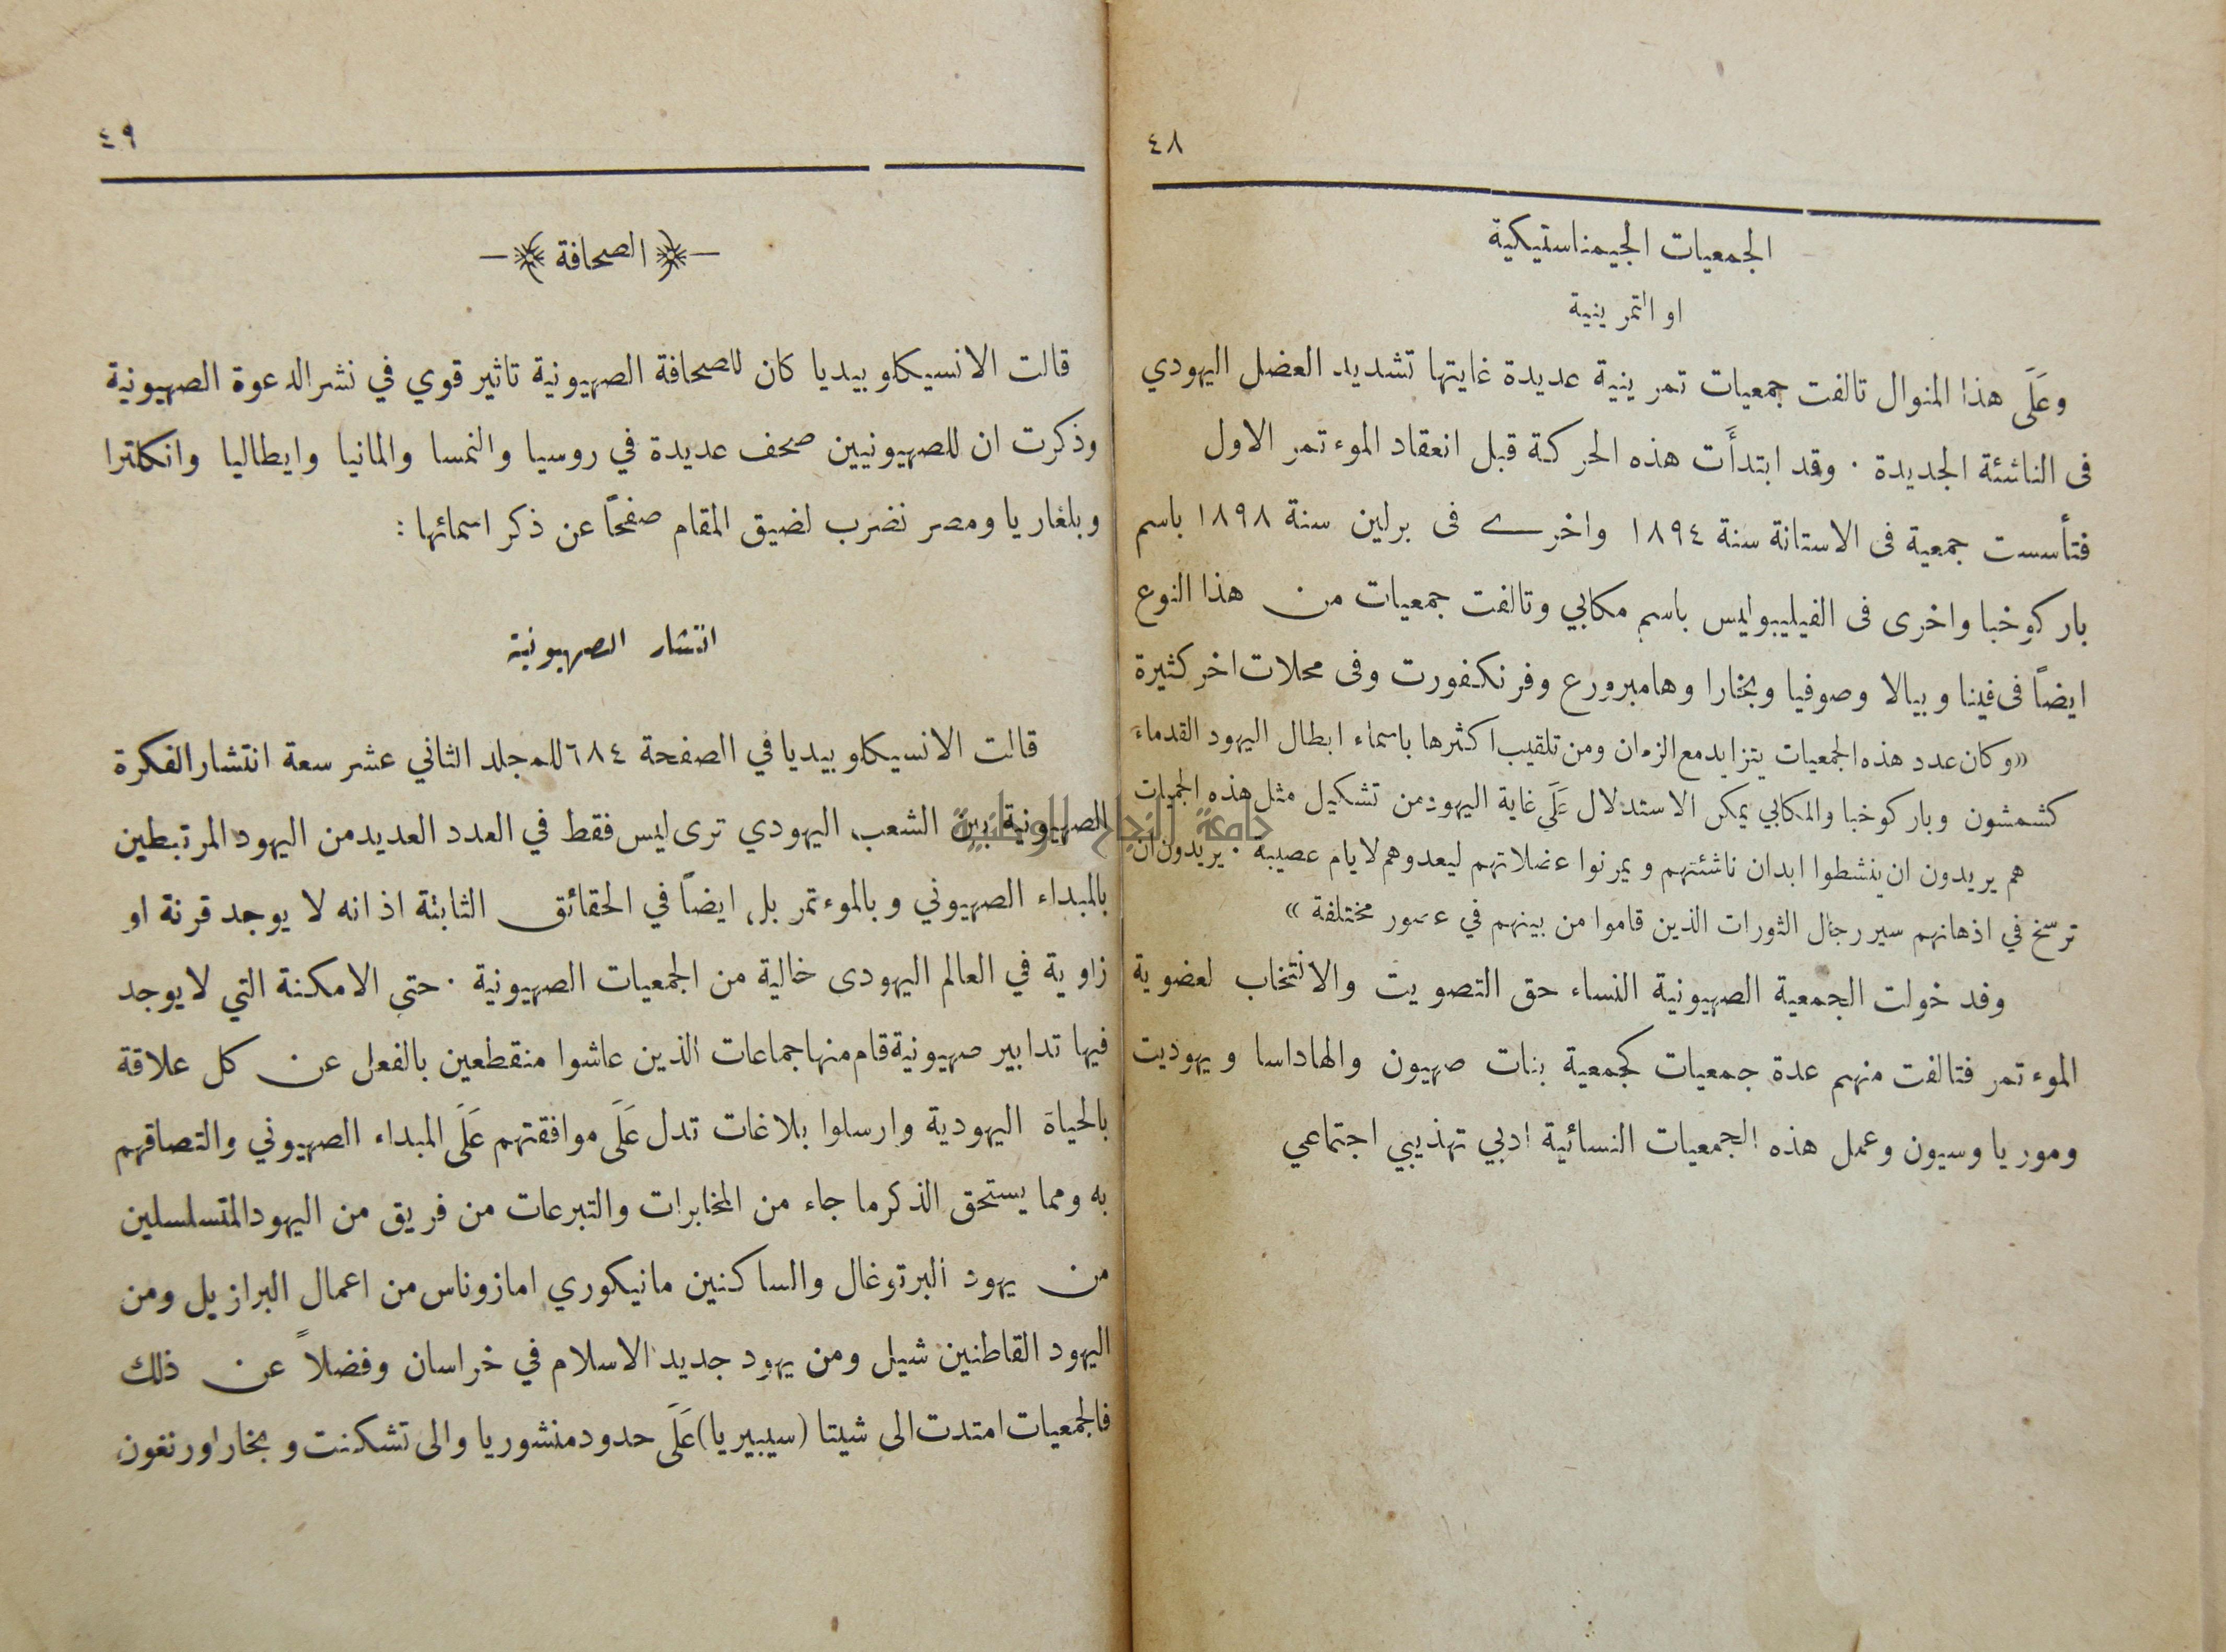 ٤٨
الجمعيات الجيمناستيكية
او التمرينية
وعَلَى هذا المنوال تالفت جمعيات تمرينية عديدة غايتها تشديد العضل اليهودي
فى الناشئة الجديدة . وقد ابتدأَت هذه الحركة قبل انعقاد الموءتمر الاول
فتأسست جمعية فى الاستانة سنة ١٨٩٤ واخرى فى برلين سنة ١٨٩٨ باسم
باركوخبا واخرى فى الفيليبوليس باسم مكابي وتالفت جمعيات من هذا النوع
ايضاً فى فينا وبيالا وصوفيا وبخارا وهامبرورع وفرنكفورت وفى محلات اخر كثيرة
«وكان عدد هذه الجمعيات يتزايد مع الزمان ومن تلقيب اكثرها باسماء ابطال اليهود القدماء
كشمشون وباركوخبا والمكابي يمكن الاستدلال عَلَى غاية اليهود من تشكيل مثل هذه الجمعيات
هم يريدون ان ينشطوا ابدان ناشئتهم ويمرنوا عضلاتهم ليعدوهم لايام عصيبة . يريدون ان
ترسخ في اذهانهم سير رجال الثورات الذين قاموا من بينهم في عصور مختلفة »
وفد خولت الجمعية الصهيونية النساء حق التصويت والانتخاب لعضوية
الموءتمر فتالفت منهم عدة جمعيات كجمعية بنات صهيون والهاداسا ويهوديت
وموريا وسيون وعمل هذه الجمعيات النسائية ادبي تهذيبي اجتماعي
جامعة النجاح الوطنية
٤٩
الصحافة
قالت الانسيكلوبيديا كان للصحافة الصهيونية تاثير قوي في نشر الدعوة الصهيونية
وذكرت ان للصهيونيين صحف عديدة في روسيا والنمسا والمانيا وايطاليا وانكلترا
وبلغاريا ومصر نضرب لضيق المقام صفحاً عن ذكر اسمائها :
انتشار الصهيونية
قالت الانسيكلوبيديا في الصفحة ٦٨٤ للمجلد الثاني عشر سعة انتشار الفكرة
الصهيونية بين الشعب اليهودي ترى ليس فقط في العدد العديد من اليهود المرتبطين
بالمبداء الصهيوني وبالموءتمر بل ايضاً في الحقائق الثابتة اذ انه لا يوجد قرنة او
زاوية في العالم اليهودى خالية من الجمعيات الصهيونية . حتى الامكنة التي لا يوجد
فيها تدابير صهيونية قام منها جماعات الذين عاشوا منقطعين بالفعل عن كل علاقة
بالحياة اليهودية وارسلوا بلاغات تدل عَلَى موافقتهم عَلَى المبداء الصهيوني والتصاقهم
به ومما يستحق الذكر ما جاء من المخابرات والتبرعات من فريق من اليهود المتسلسلين
من يهود البرتوغال والساكنين مانيكوري امازوناس من اعمال البرازيل ومن
اليهود القاطنين شيل ومن يهود جديد الاسلام في خراسان وفضلاً عن ذلك
فالجمعيات امتدت الى شيتا (سيبيريا) عَلَى حدود منشوريا والى تشكنت وبخارا ورنغون